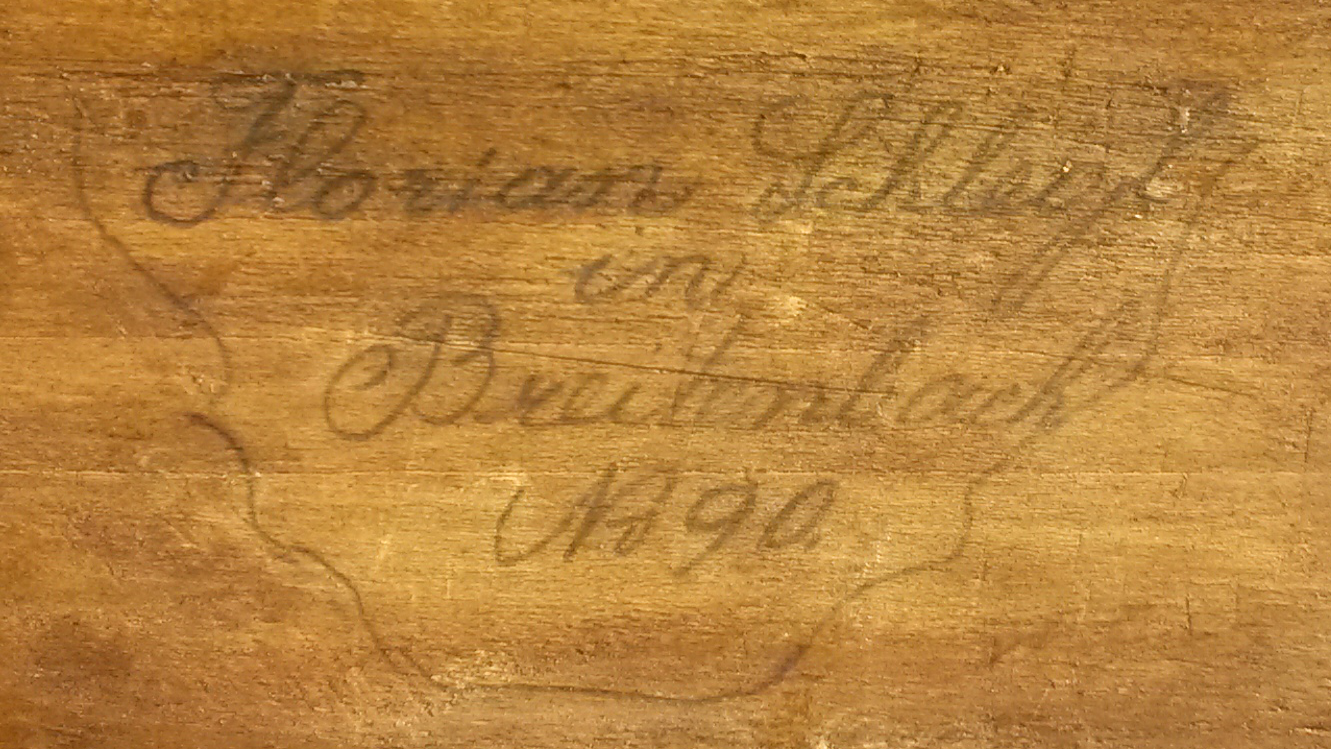 Florian
in
Breitenbach
No 90.